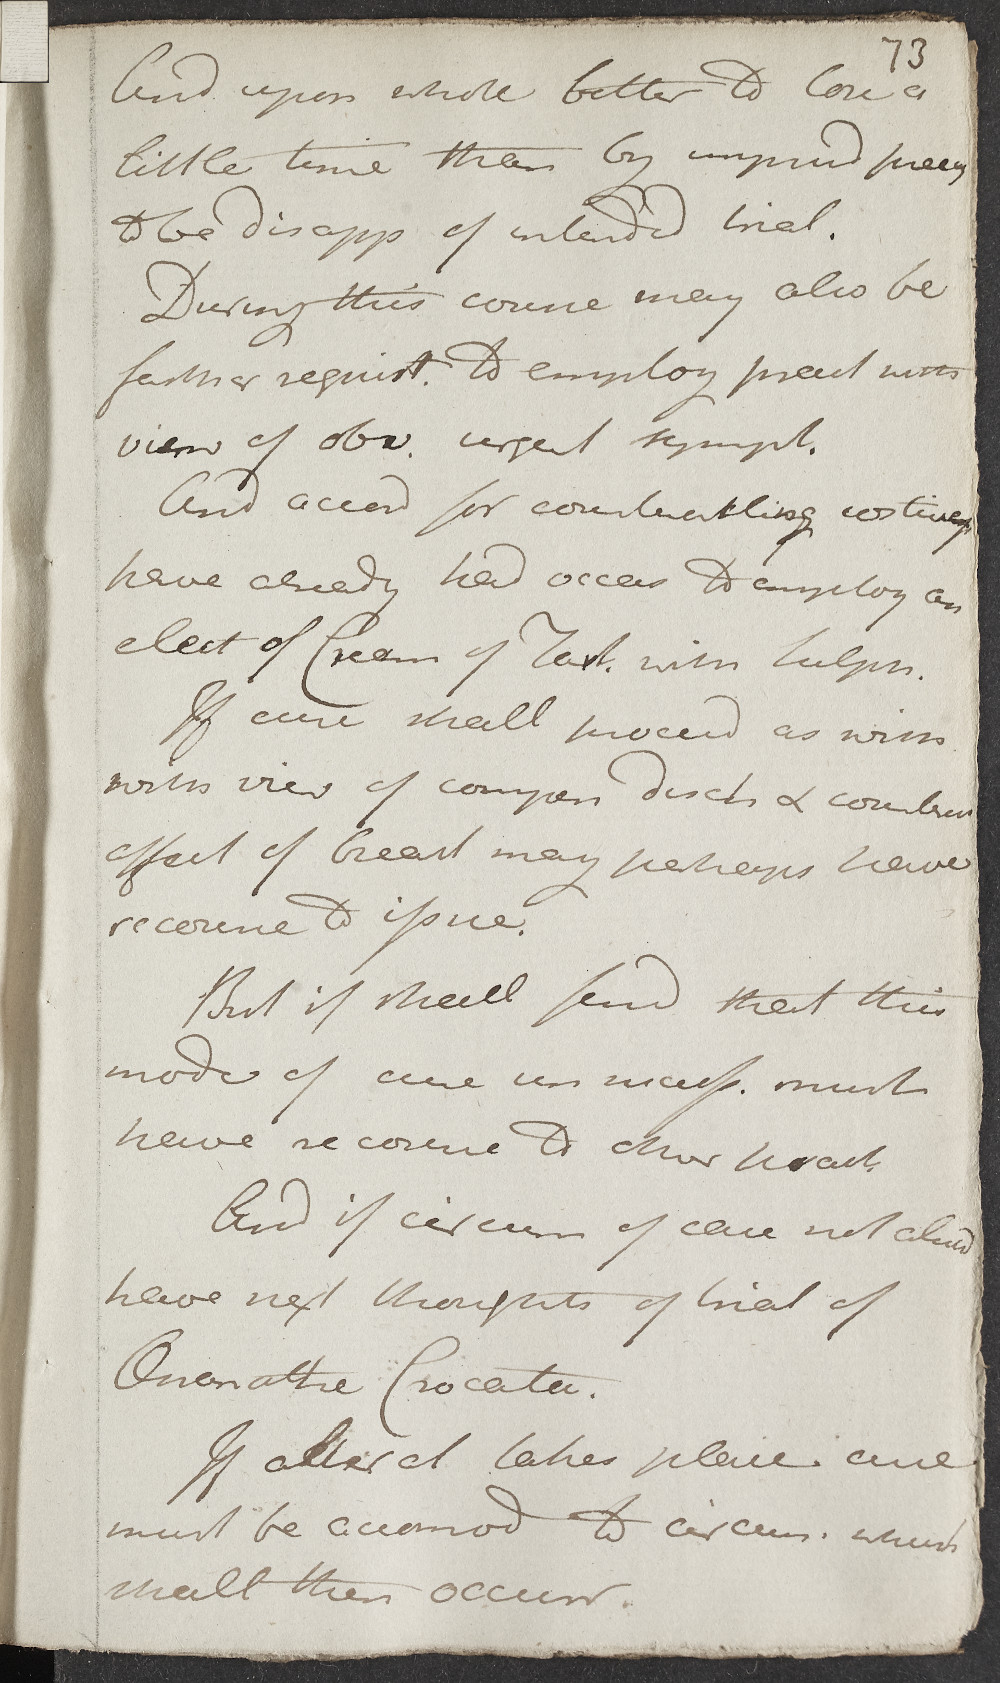 73
And upon whole better to lose a
little time than by unprud
to be disapp of intended trial.
During this course may also be
farther requisit. to employ pract with
view of obv. urgent sympt.
And accord for counteracting costiveness
have already had occas to employ an
elect of Cream of Tart. with Sulph.
If cure shall proceed as wish
with view of compen disch & counteract
effect of breast may perhaps have
recourse to issue.
But if shall find that this
mode of cure unsuccessf. must
have recourse to other pract.
And if circum of case not altered
have next thoughts of trial of
Oenanthe Crocata.
If alterat takes place cure
must be accomod to circum. which
shall then occurr.